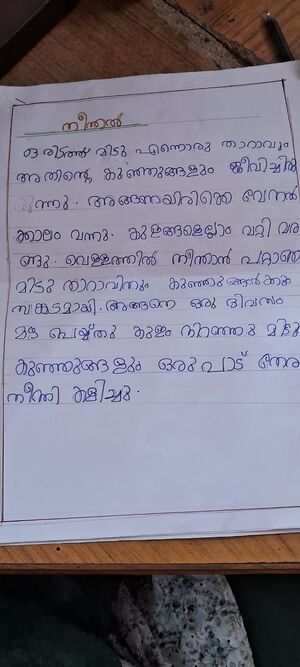 നീന്തൽ
ഒരിടത്ത് മിട്ടു എന്നൊരു താറാവും
അതിന്റെ കുഞ്ഞുങ്ങളും ജീവിച്ചിരി
രുന്നു. അങ്ങനെയിരിക്കെ വേനൽ
ക്കാലം വന്നു. കുളങ്ങളെല്ലാം വറ്റി വര
ണ്ടു. വെള്ളത്തിൽ നീന്താൻ പറ്റാഞ്ഞ
മിട്ടു താറാവിനും കുഞ്ഞുങ്ങൾക്കും
സങ്കടമായി. അങ്ങനെ ഒരു ദിവസം
മഴ പെയ്തു കുളം നിറഞ്ഞു മിട്ടു
കുഞ്ഞുങ്ങളും ഒരുപാട് നേര
നീന്തി കളിച്ചു.